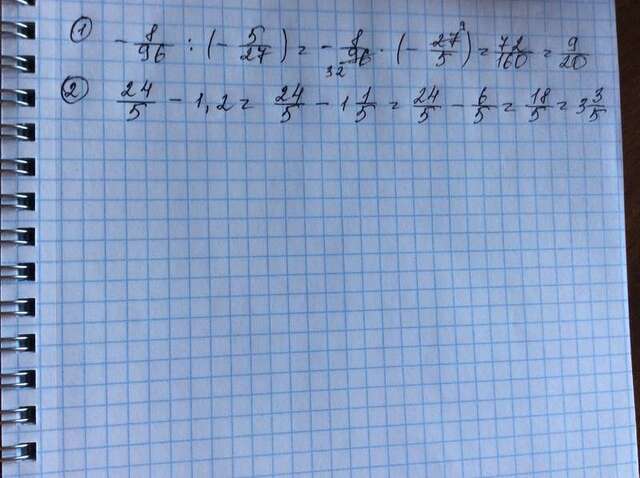 ① - 8/96 : (- 5/27) = - 8/96 32 · (- 27 9/5) = 72/160 = 9/20
② 24/5 - 1,2 = 24/5 - 1 1/5 = 24/5 - 6/5 = 18/5 = 3 3/5